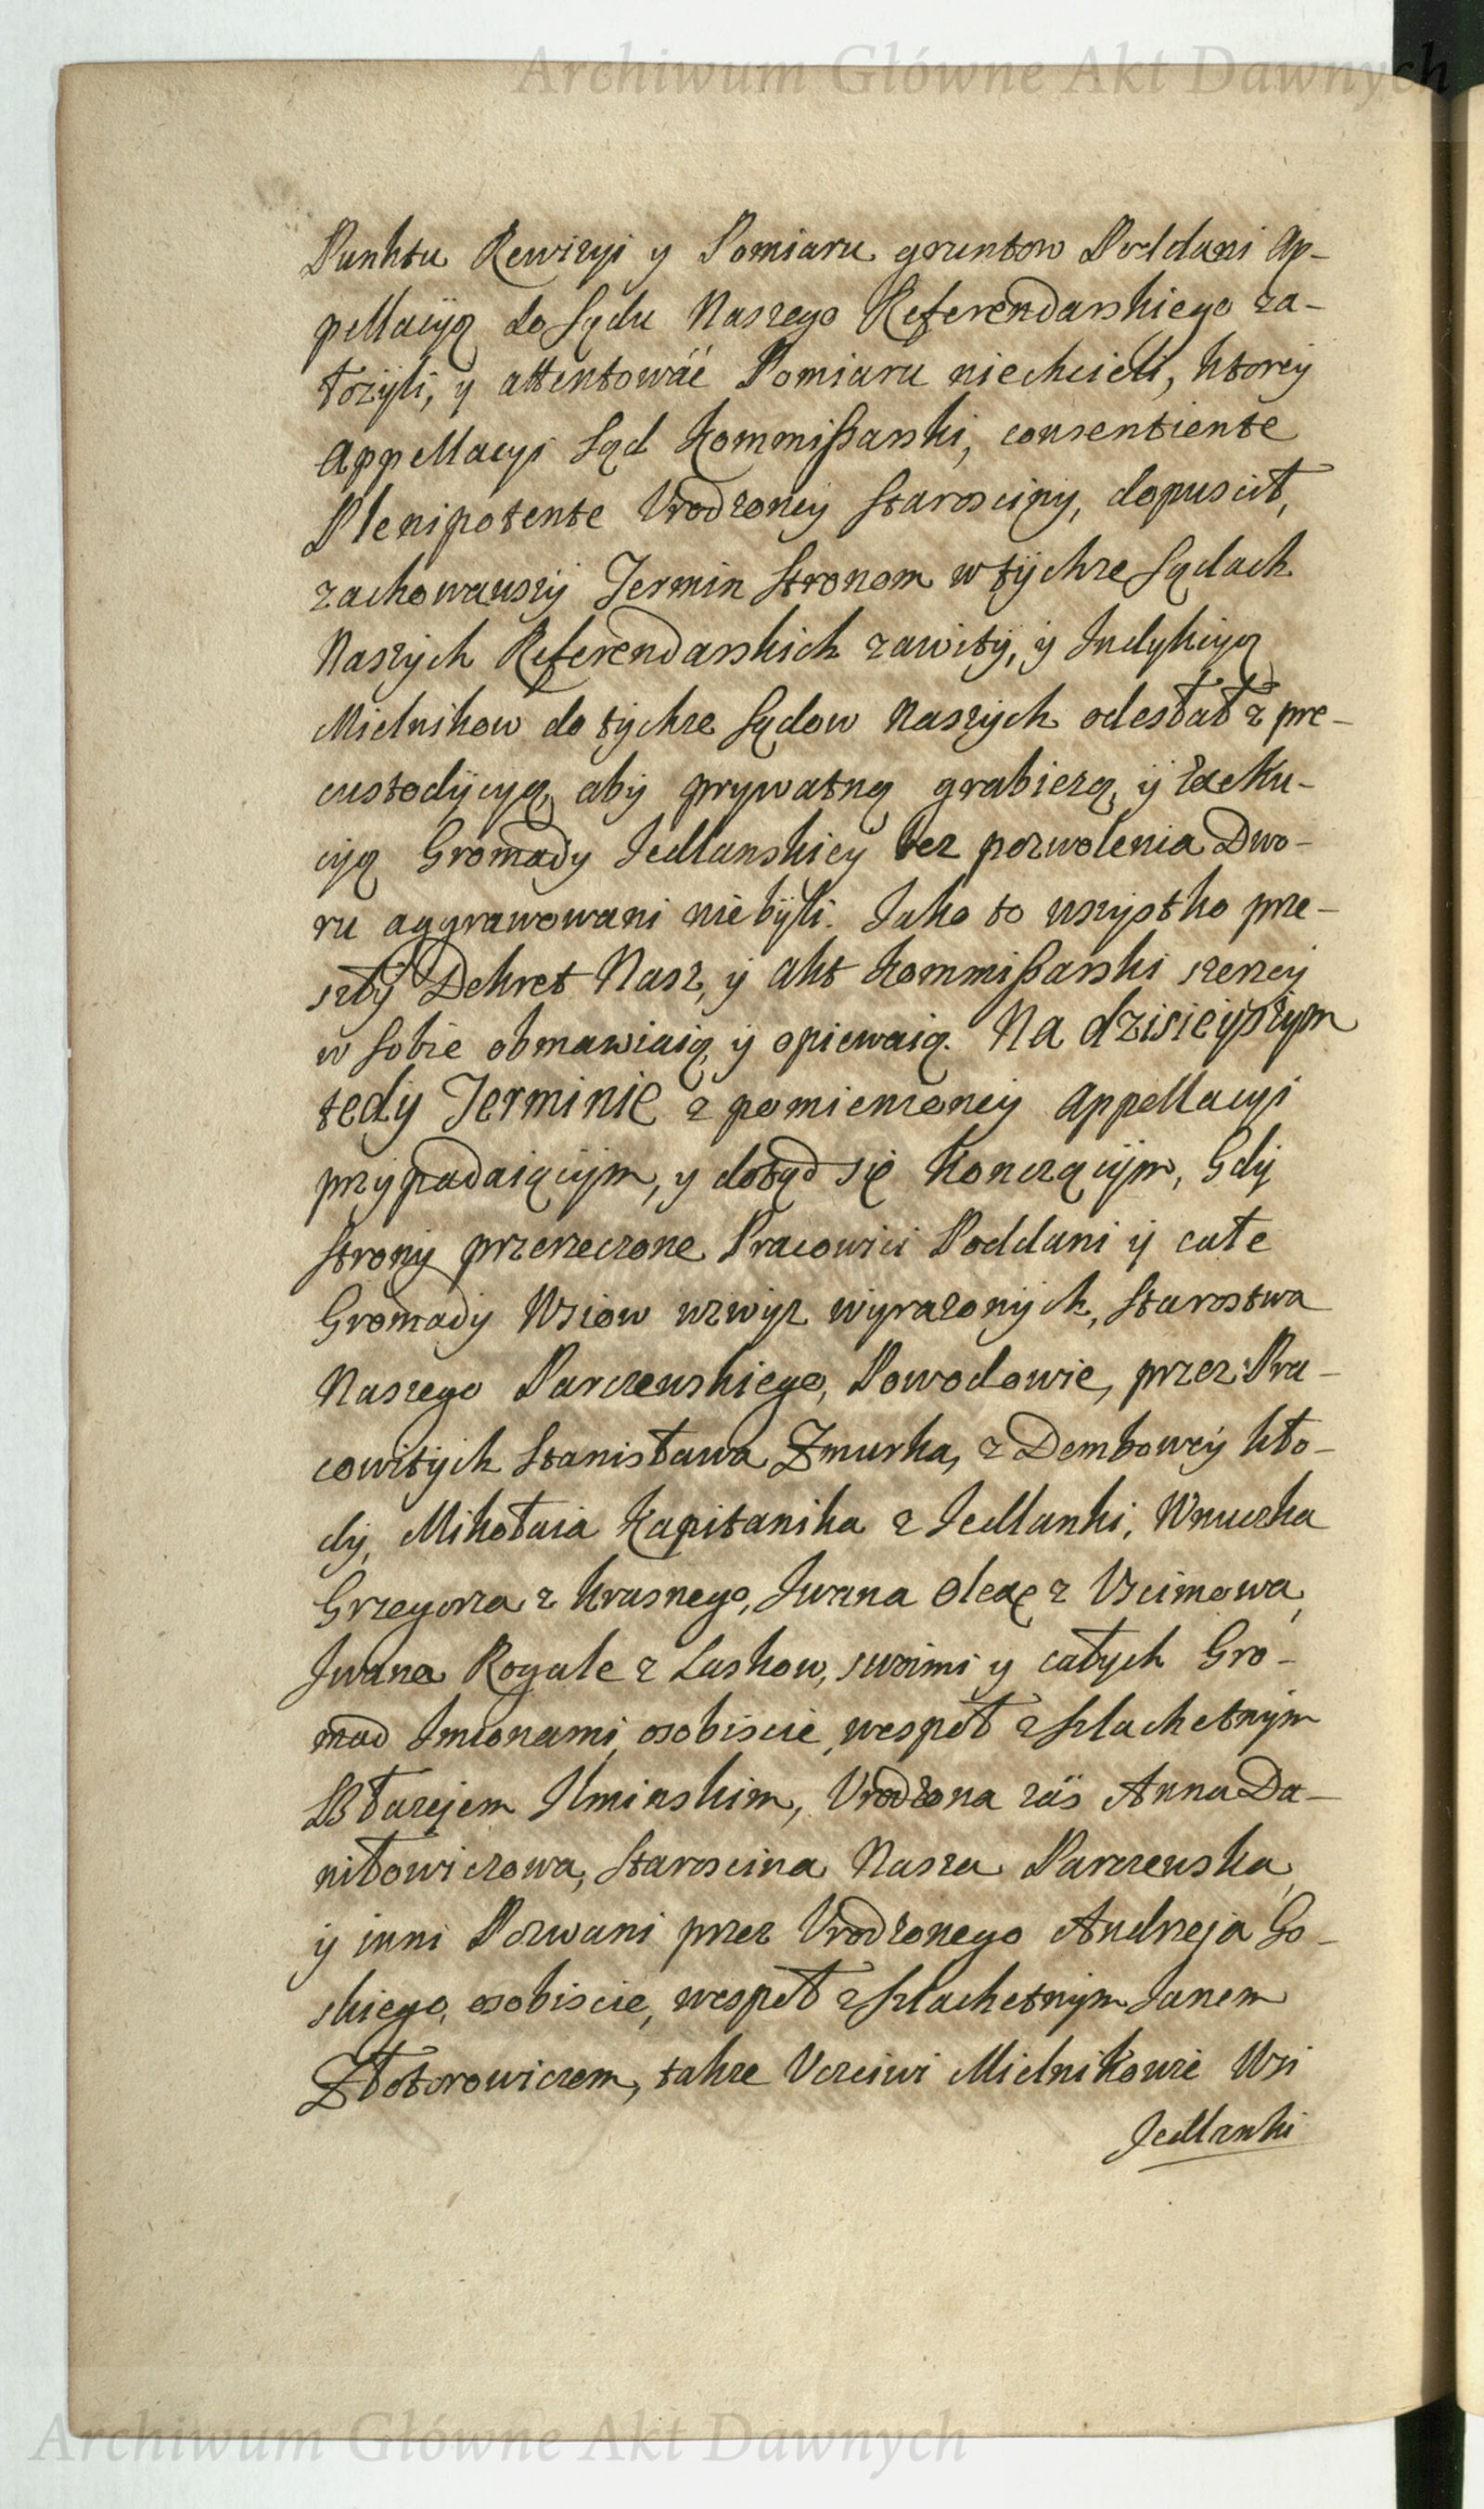 Archiwum Główne Akt Dawnych
Punktu Rewizyi y Pomiaru gruntow Poddani Ap-
pellacyą do Sądu Naszego Referendarskiego za-
łożyli, y attentować Pomiaru niechcieli, ktorey
Appellacyi Sąd Kommißarski, consentiente
Plenipotente Urodzoney Starosciny, dopuscił,
zachowawszy Termin Stronom w tychze Sądach
Naszych Referendarskich zawity, y Indykcyą
Mielnikow do tychze Sądow Naszych odesłał z pre-
custodycyą, aby prywatną grabiezą, y exeku-
cyą Gromady Jedlanskiey bez pozwolenia Dwo-
ru aggrawowani niebyli. Jako to wszystko prze-
szły Dekret Nasz, y Akt Kommißarski szerzey
w sobie obmawiaią, y opiewaią. Na dzisieyszym
tedy Terminie z pomienioney Appellacyi
przypadaiącym, y dotąd się konczącym, Gdy
Strony przerzeczone Pracowici Poddani y całe
Gromady Wsiow wzwyz wyrazonych, Starostwa
Naszego Parczewskiego, Powodowie, przez Pra-
cowitych Stanisława Zmurka, z Dembowey kło-
dy, Mikołaia Kapitanika z Jedlanki, Wnuczka
Grzegorza z Krasnego, Iwana Olexę z Uscimowa,
Iwana Rogale z Laskow, swoimi y całych Gro-
mad Imionami, osobiscie, wespoł z Szlachetnym
Błazejem Ilminskim, Urodzona zas Anna Da-
niłowiczowa, Staroscina Nasza Parczewska,
y inni Pozwani przez Urodzonego Andrzeja Go-
skiego, osobiscie, wespoł z Szlachetnym Janem
Złotorowiczem, takze Uczciwi Mielnikowie Wsi
Jedlanki
Archiwum Główne Akt Dawnych